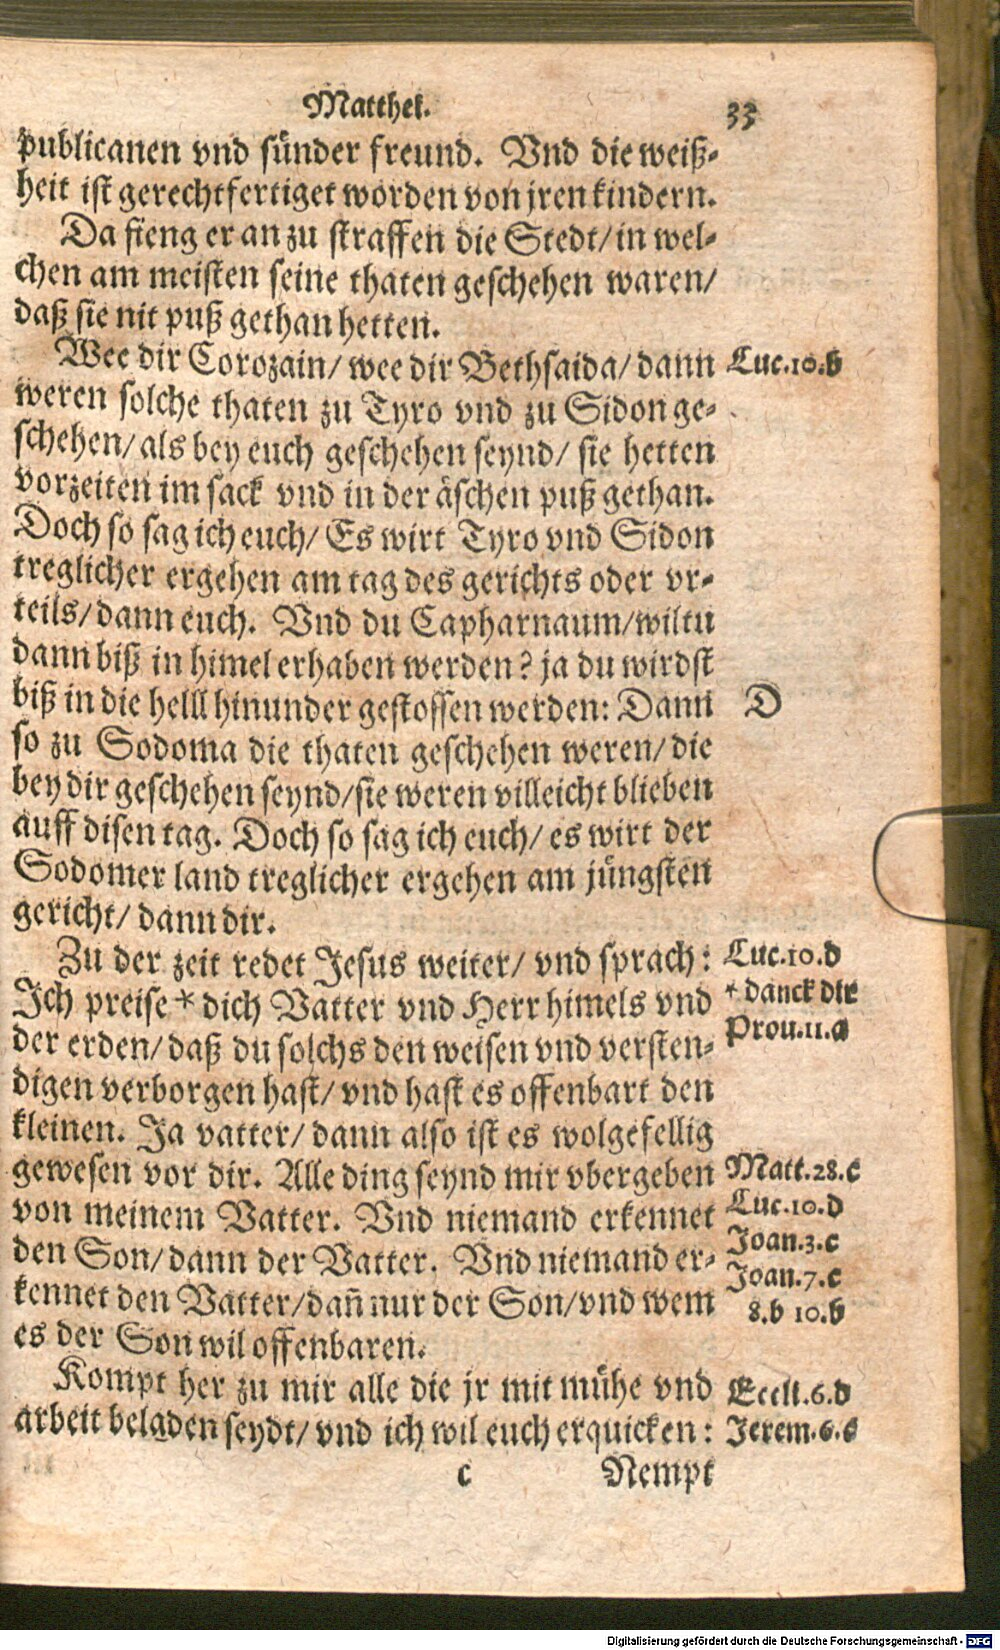 Matthei. 33
publicanen vnd sünder freund. Vnd die weiß-
heit ist gerechtfertiget worden von jren kindern.
Da fieng er an zu straffen die Stedt/ in wel-
chen am meisten seine thaten geschehen waren/
daß sie nit puß gethan hetten.
Wee dir Corozain/ wee dir Bethsaida/ dann Luc.10.b
weren solche thaten zu Tyro vnd zu Sidon ge-
schehen/ als bey euch geschehen seynd/ sie hetten
vorzeiten im sack vnd in der äschen puß gethan.
Doch so sag ich euch/ Es wirt Tyro vnd Sidon
treglicher ergehen am tag des gerichts oder vr-
teils/ dann euch. Vnd du Capharnaum/ wiltu
dann biß in himel erhaben werden? ja du wirdst
biß in die helll hinunder gestossen werden: Dann D
so zu Sodoma die thaten geschehen weren/ die
bey dir geschehen seynd/ sie weren villeicht blieben
auff disen tag. Doch so sag ich euch/ es wirt der
Sodomer land treglicher ergehen am jüngsten
gericht/ dann dir.
Zu der zeit redet Jesus weiter/ vnd sprach: Luc.10.d
Ich preise * dich Vatter vnd Herr himels vnd * danck dir
der erden/ daß du solchs den weisen vnd versten- Prou.11.a
digen verborgen hast/ vnd hast es offenbart den
kleinen. Ja vatter/ dann also ist es wolgefellig
gewesen vor dir. Alle ding seynd mir vbergeben Matt.28.c
von meinem Vatter. Vnd niemand erkennet Luc.10.d
den Son/ dann der Vatter. Vnd niemand er- Joan.3.c
kennet den Vatter/ dañ nur der Son/ vnd wem Joan.7.c
es der Son wil offenbaren. 8.b 10.b
Kompt her zu mir alle die jr mit mühe vnd Eccli.6.d
arbeit beladen seydt/ vnd ich wil euch erquicken: Jerem.6.c
c Nempt
Digitalisierung gefördert durch die Deutsche Forschungsgemeinschaft - DFG